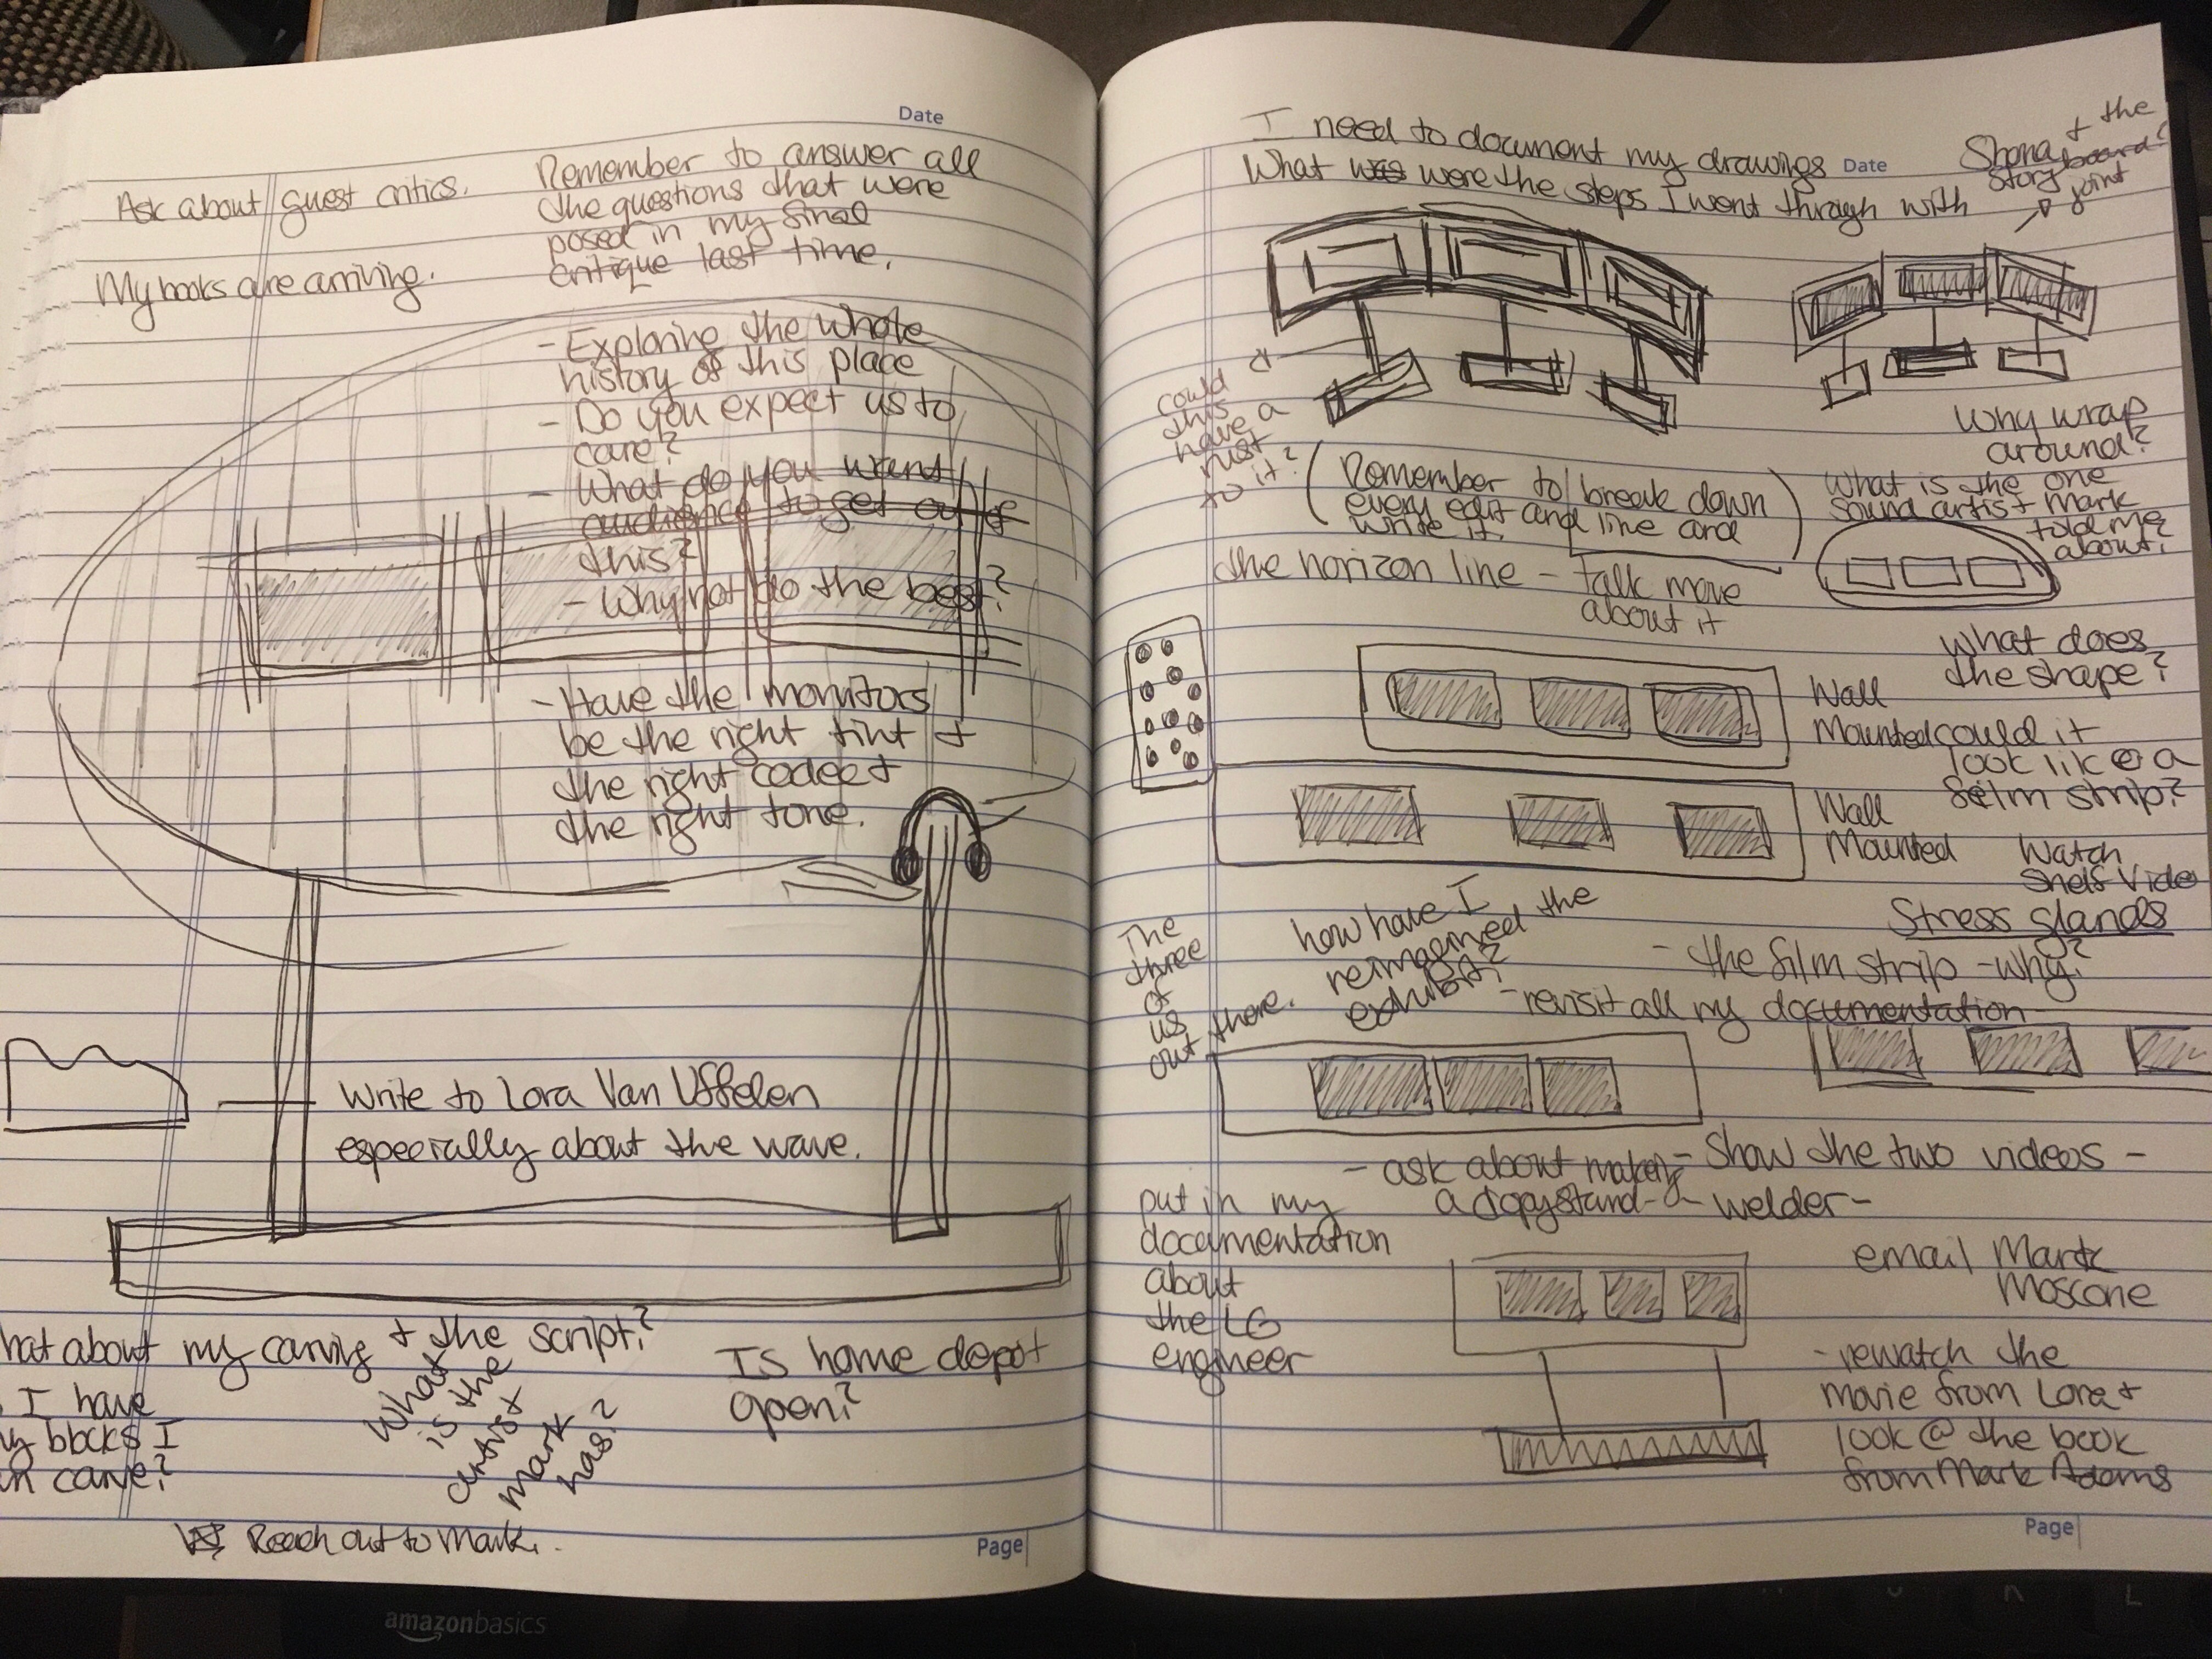 Date
Ask about guest critics.
My books are arriving.
Remember to answer all
the questions that were
posed in my final
critique last time.
- Exploring the whole
history of this place
- Do you expect us to
care?
- What do you want
audience to get out of
this?
- Why not do the best?
- Have the monitors
be the right tint +
the right codec +
the right tone.
Write to Lora Van Uffelen
especially about the wave.
hat about my carving + the script?
I have
blocks I
carve?
What
is the
artist
mark
has?
Is home depot
open?
Reach out to Mark.
Page
amazonbasics
I need to document my drawings
Date
What was were the steps I went through with
Shona + the
story board?
joint
could
this
have a
rust
to it?
Why wrap
around?
(Remember to break down
every edit and line and
write it.)
What is the one
sound artist Mark
told me
about?
the horizon line - talk more
about it
What does
the shape?
Wall
Mounted
could it
look like a
film strip?
Wall
Mounted
Watch
Shelf Video
Stress glands
The
three
of
us
out there.
how have I
reimagined the
exhibit?
- the film strip - why?
- revisit all my documentation
- ask about making
a copystand - a welder -
- Show the two videos -
put in my
documentation
about
the LG
engineer
email Mark
Moscone
- rewatch the
movie from Lora +
look @ the book
from Mark Adams
Page